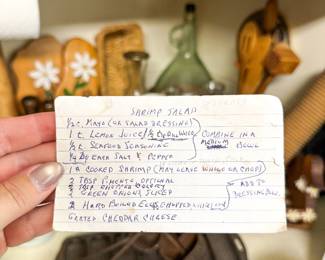 SHRIMP SALAD
1/2 C. MAYO (OR SALAD DRESSING)
1 t LEMON JUICE / 1/2 t DRY DILL WEED
1/2 t SEAFOOD SEASONING
1/4 t EACH SALT & PEPPER
COMBINE IN A
MEDIUM BOWL
1 # COOKED SHRIMP (MAY LEAVE WHOLE OR CHOP)
2 TBSP PIMENTO, OPTIONAL
TBSP CHOPPED CELERY
2 GREEN ONIONS SLICED
2 HARD BOILED EGGS CHOPPED
ADD TO
DRESSING BOWL
GRATED CHEDDAR CHEESE